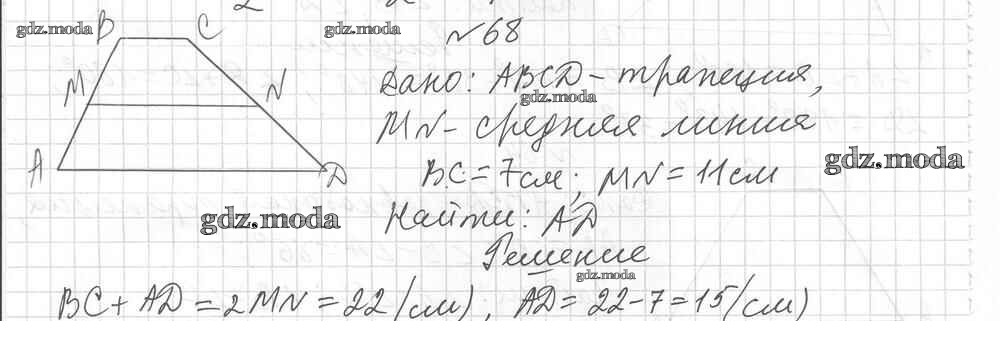 gdz.moda
B C
gdz.moda
№68
M N
A D
Дано: ABCD - трапеция,
gdz.moda
MN - средняя линия
gdz.moda
BC = 7см; MN = 11см
gdz.moda
Найти: AD
Решение
gdz.moda
BC + AD = 2MN = 22 (см); AD = 22 - 7 = 15 (см)